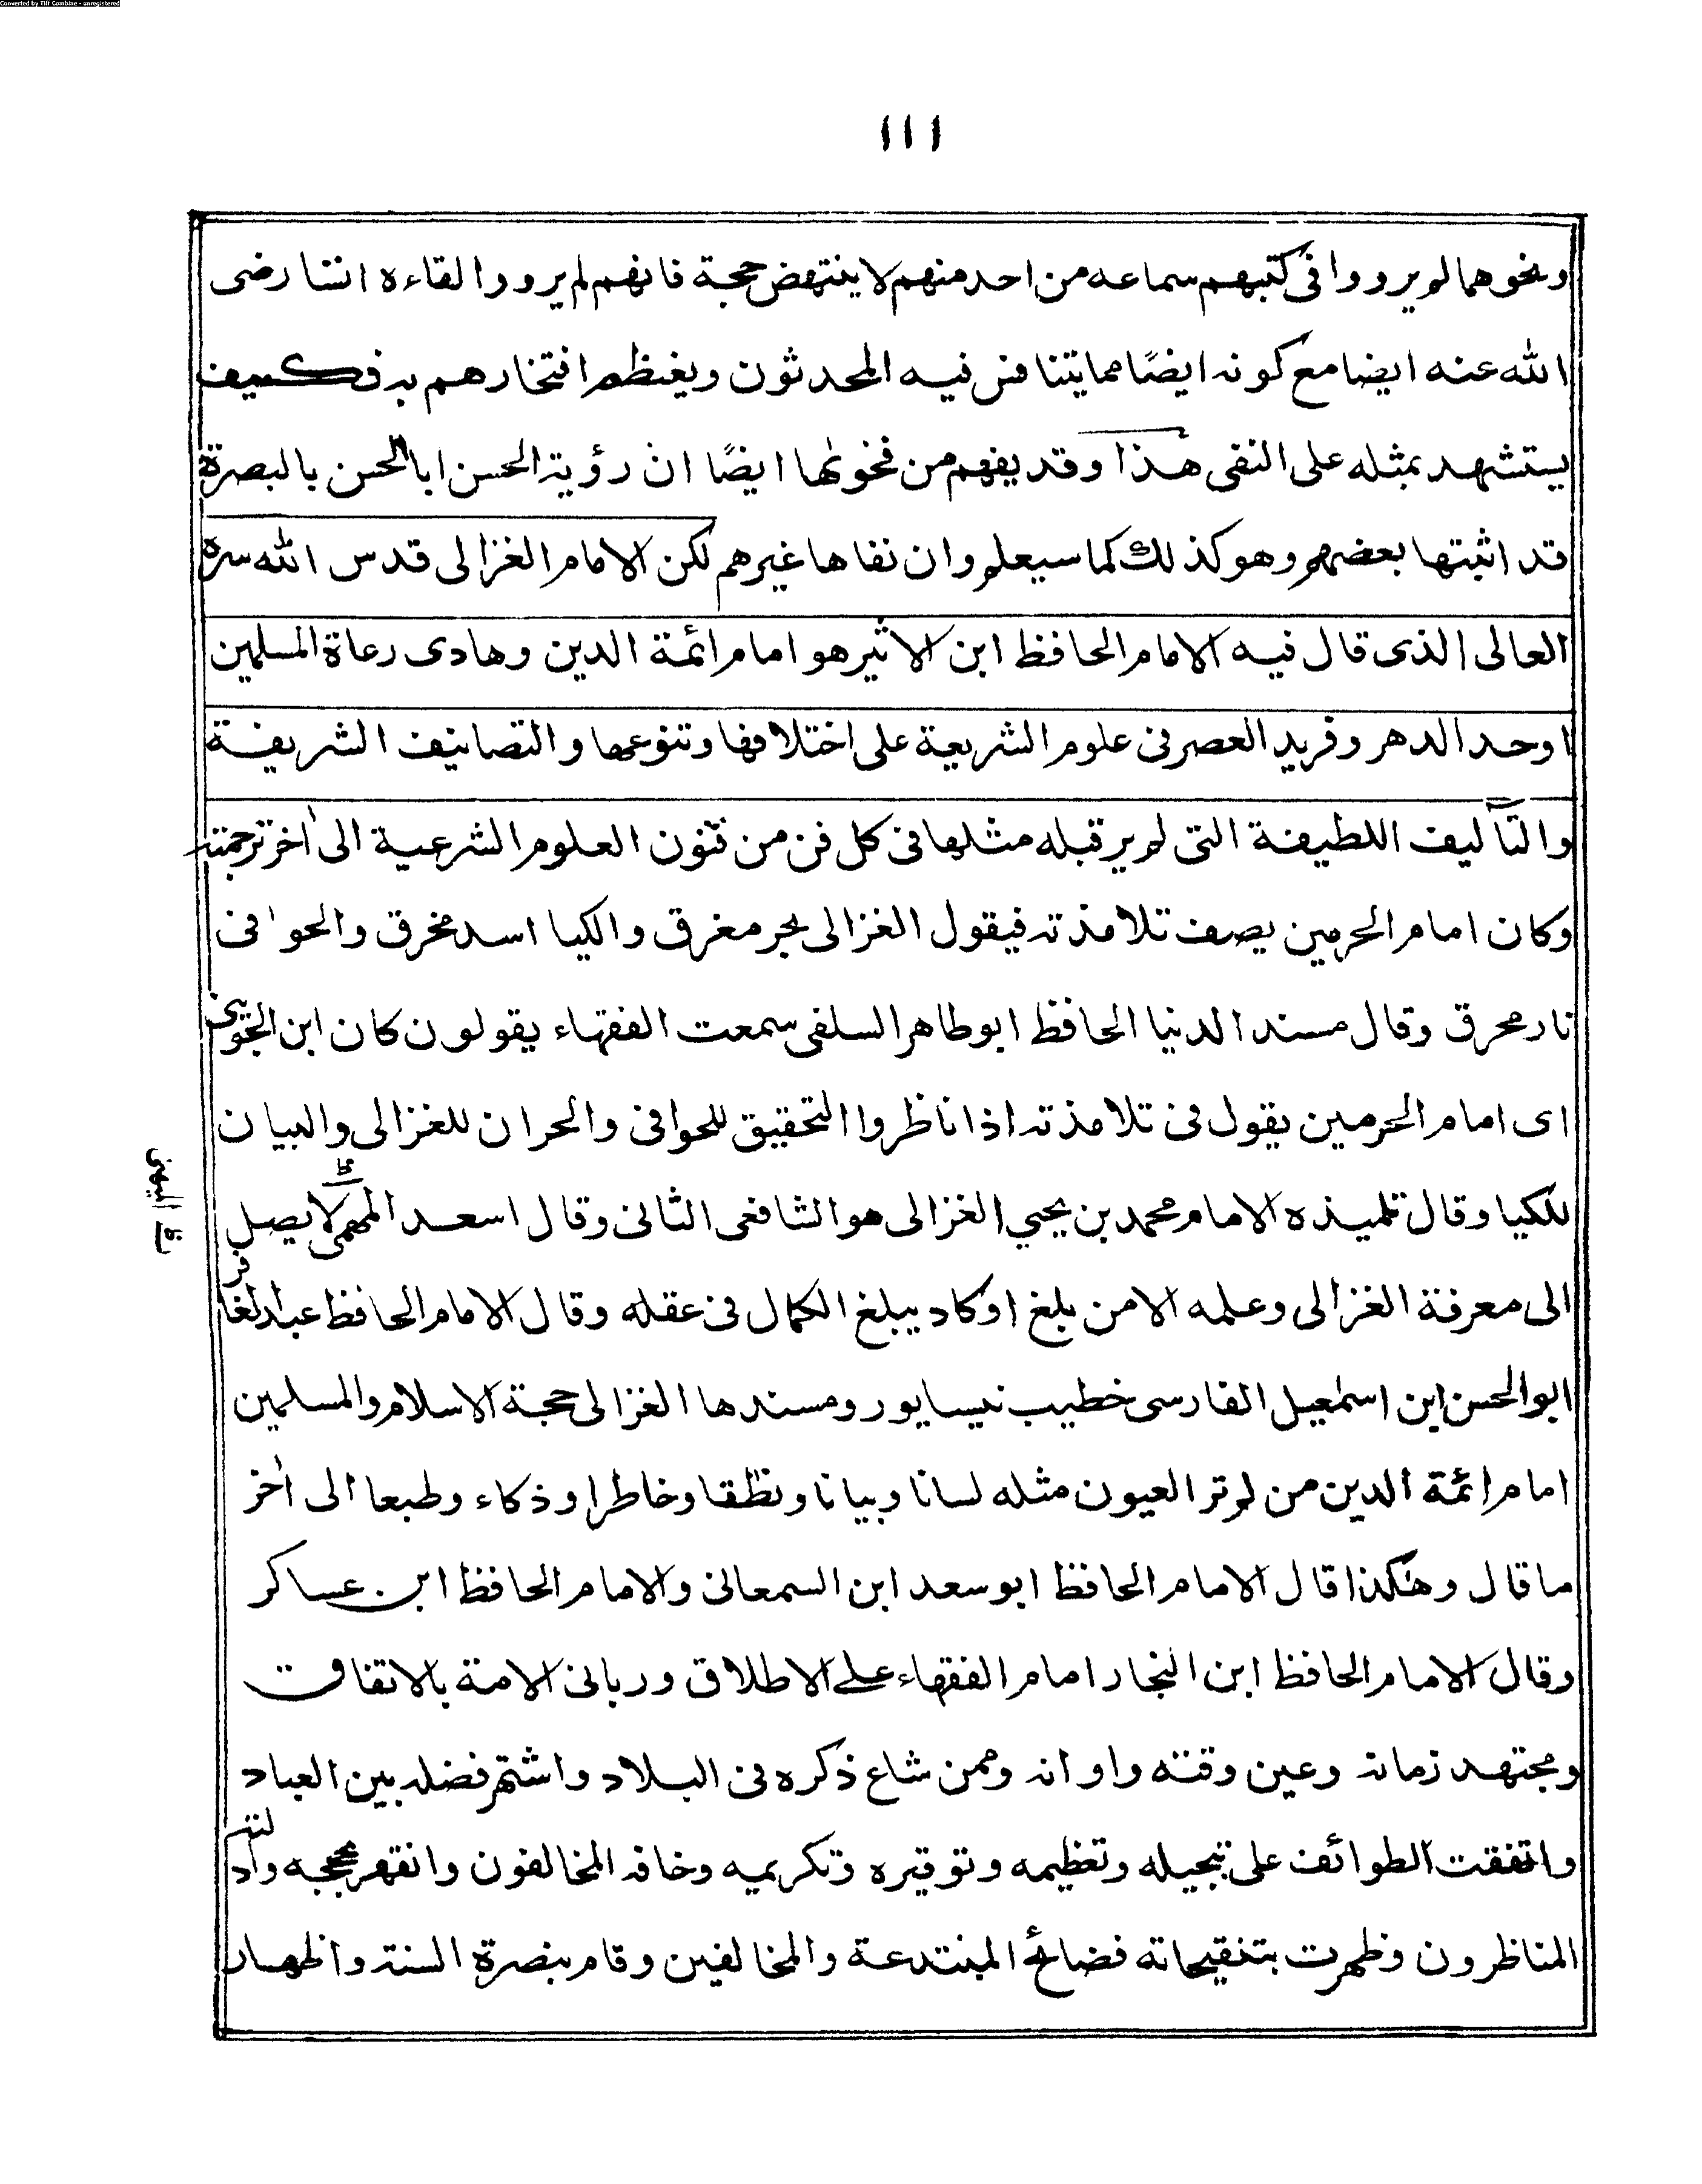 Converted by Tiff Combine - unregistered
١١١
ونحوهما لم يرووا فى كتبهم سماعه من احد منهم لا ينتهض حجة فانهم لم يرووا لقاءه انسا رضى
الله عنه ايضا مع كونه ايضًا مما يتنافس فيه المحدثون ويعظم افتخارهم به فكيف
يستشهد بمثله على النفى هذا وقد يفهم من فحوىٰها ايضًا ان رؤية الحسن ابا الحسن بالبصرة
قد اثبتها بعضهم وهو كذلك كما سيعلم وان نفاها غيرهم لكن الامام الغزالى قدس الله سره
العالى الذى قال فيه الامام الحافظ ابن الاثير هو امام ائمة الدين وهادى رعاة المسلمين
اوحد الدهر وفريد العصر فى علوم الشريعة على اختلافها وتنوعها والتصانيف الشريفة
والتآليف اللطيفة التى لم ير قبله مثلها فى كل فن من فنون العلوم الشرعية الى اٰخر ترجمته
وكان امام الحرمين يصف تلامذته فيقول الغزالى بحر مغرق والكيا اسد مخرق والحوافى
نار محرق وقال مسند الدنيا الحافظ ابو طاهر السلفى سمعت الفقهاء يقولون كان ابن الجوينى
اى امام الحرمين يقول فى تلامذته اذا ناظروا التحقيق للحوافى والحران للغزالى والبيان
للكيا وقال تلميذه الامام محمد بن يحيي الغزالى هو الشافعى الثانى وقال اسعد المهمى لا يصل
الى معرفة الغزالى وعلمه الا من بلغ او كاد يبلغ الكمال فى عقله وقال الامام الحافظ عبد الغافر
ابو الحسن ابن اسمٰعيل الفارسى خطيب نيسابور ومسندها الغزالى حجة الاسلام والمسلمين
امام ائمة الدين من لم تر العيون مثله لسانا وبيانا ونطقا وخاطرا وذكاء وطبعا الى اٰخر
ما قال وهٰكذا قال الامام الحافظ ابو سعد ابن السمعانى والامام الحافظ ابن عساكر
وقال الامام الحافظ ابن النجار امام الفقهاء على الاطلاق وربانى الامة بالاتفاق
ومجتهد زمانه وعين وقته واوانه وممن شاع ذكره فى البلاد واشتهر فضله بين العباد
واتفقت الطوائف على تبجيله وتعظيمه وتوقيره وتكريمه وخافه المخالفون وانقهر بحججه وادلته
المناظرون وظهرت بتنقيحاته فضائح المبتدعة والمخالفين وقام بنصرة السنة واظهار